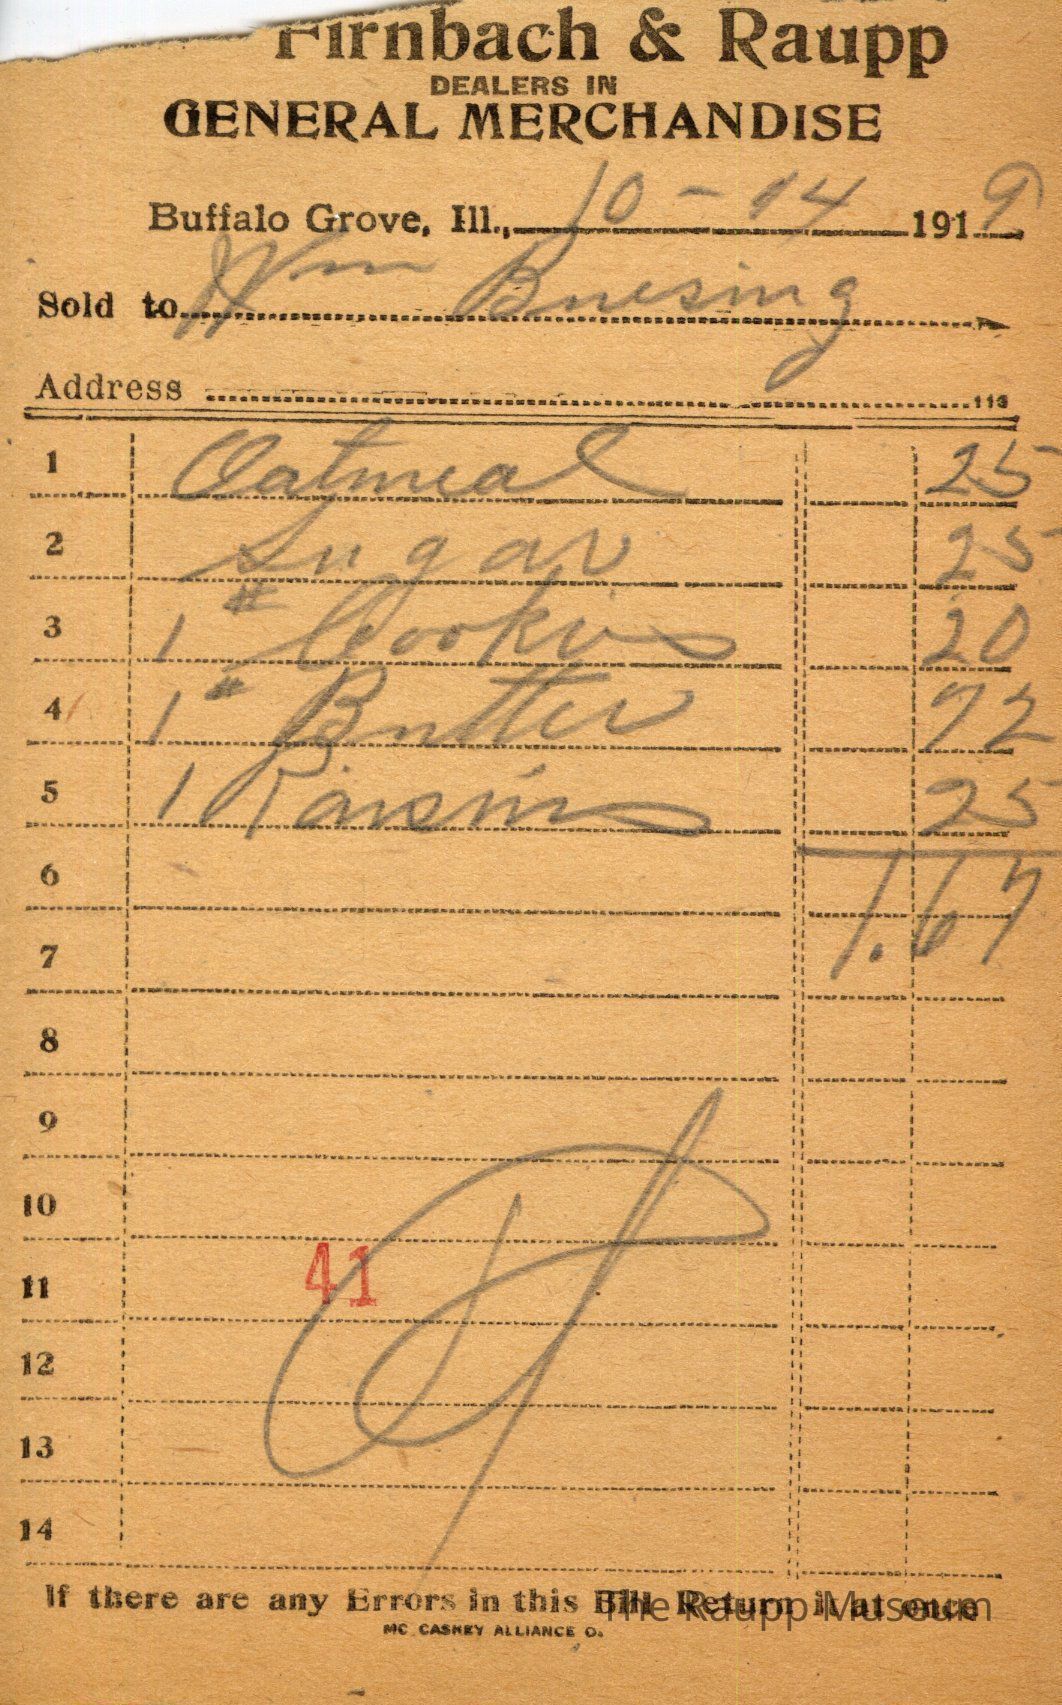 Firnbach & Raupp
DEALERS IN
GENERAL MERCHANDISE
Buffalo Grove, Ill., 10-14 1919
Sold to Wm Buesing
Address 113
1 Oatmeal 25
2 Sugar 25
3 1# Cookies 20
4 1# Butter 72
5 1 Raisins 25
6 1.67
7
8
9
10
11 41
12
13
14
If there are any Errors in this Bill Return it at once
The Raupp Museum
MC CASKEY ALLIANCE O.